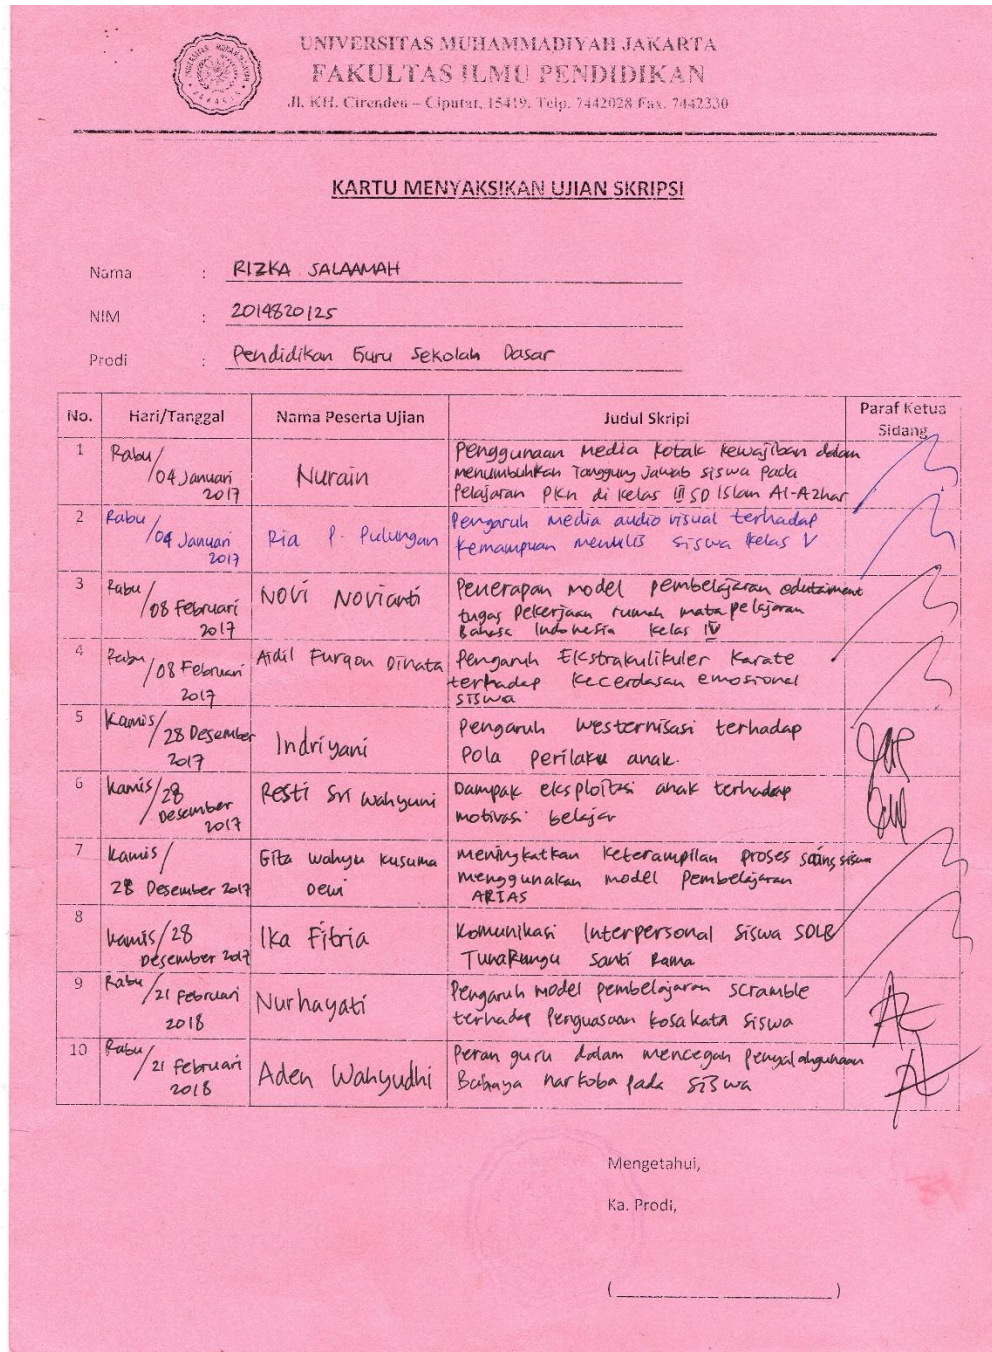 UNIVERSITAS MUHAMMADIYAH JAKARTA
FAKULTAS ILMU PENDIDIKAN
Jl. KH. Cirendeu – Ciputat, 15419. Telp. 7442028 Fax. 7442330
KARTU MENYAKSIKAN UJIAN SKRIPSI
Nama : RIZKA SALAAMAH
NIM : 2014820125
Prodi : Pendidikan Guru Sekolah Dasar
No. Hari/Tanggal Nama Peserta Ujian Judul Skripi Paraf Ketua Sidang
1 Rabu/ 04 Januari 2017 Nurain Penggunaan media kotak kewajiban dalam
menumbuhkan Tanggung Jawab siswa pada
Pelajaran PKn di kelas III SD Islam Al-Azhar
2 Rabu/ 04 Januari 2017 Ria P. Pulungan Pengaruh media audio visual terhadap
kemampuan menulis siswa kelas V
3 Rabu/ 08 Februari 2017 Novi Novianti Penerapan model pembelajaran edutaiment
tugas Pekerjaan rumah mata pelajaran
Bahasa Indonesia kelas IV
4 Rabu/ 08 Februari 2017 Aidil Furqon Dinata Pengaruh Ekstrakulikuler Karate
terhadap kecerdasan emosional
siswa
5 Kamis/ 28 Desember 2017 Indriyani Pengaruh westernisasi terhadap
Pola perilaku anak.
6 Kamis/ 28 Desember 2017 Resti Sri Wahyuni Dampak eksploitasi anak terhadap
motivasi belajar
7 Kamis/ 28 Desember 2017 Gita Wahyu Kusuma Dewi meningkatkan keterampilan proses sains siswa
menggunakan model Pembelajaran
ARIAS
8 Kamis/ 28 Desember 2017 Ika Fitria Komunikasi Interpersonal Siswa SDLB
TunaRungu Santi Rama
9 Rabu/ 21 Februari 2018 Nurhayati Pengaruh model pembelajaran scramble
terhadap Penguasaan kosakata siswa
10 Rabu/ 21 Februari 2018 Aden Wahyudhi Peran guru dalam mencegah penyalahgunaan
Bahaya narkoba pada siswa
Mengetahui,
Ka. Prodi,
(                    )